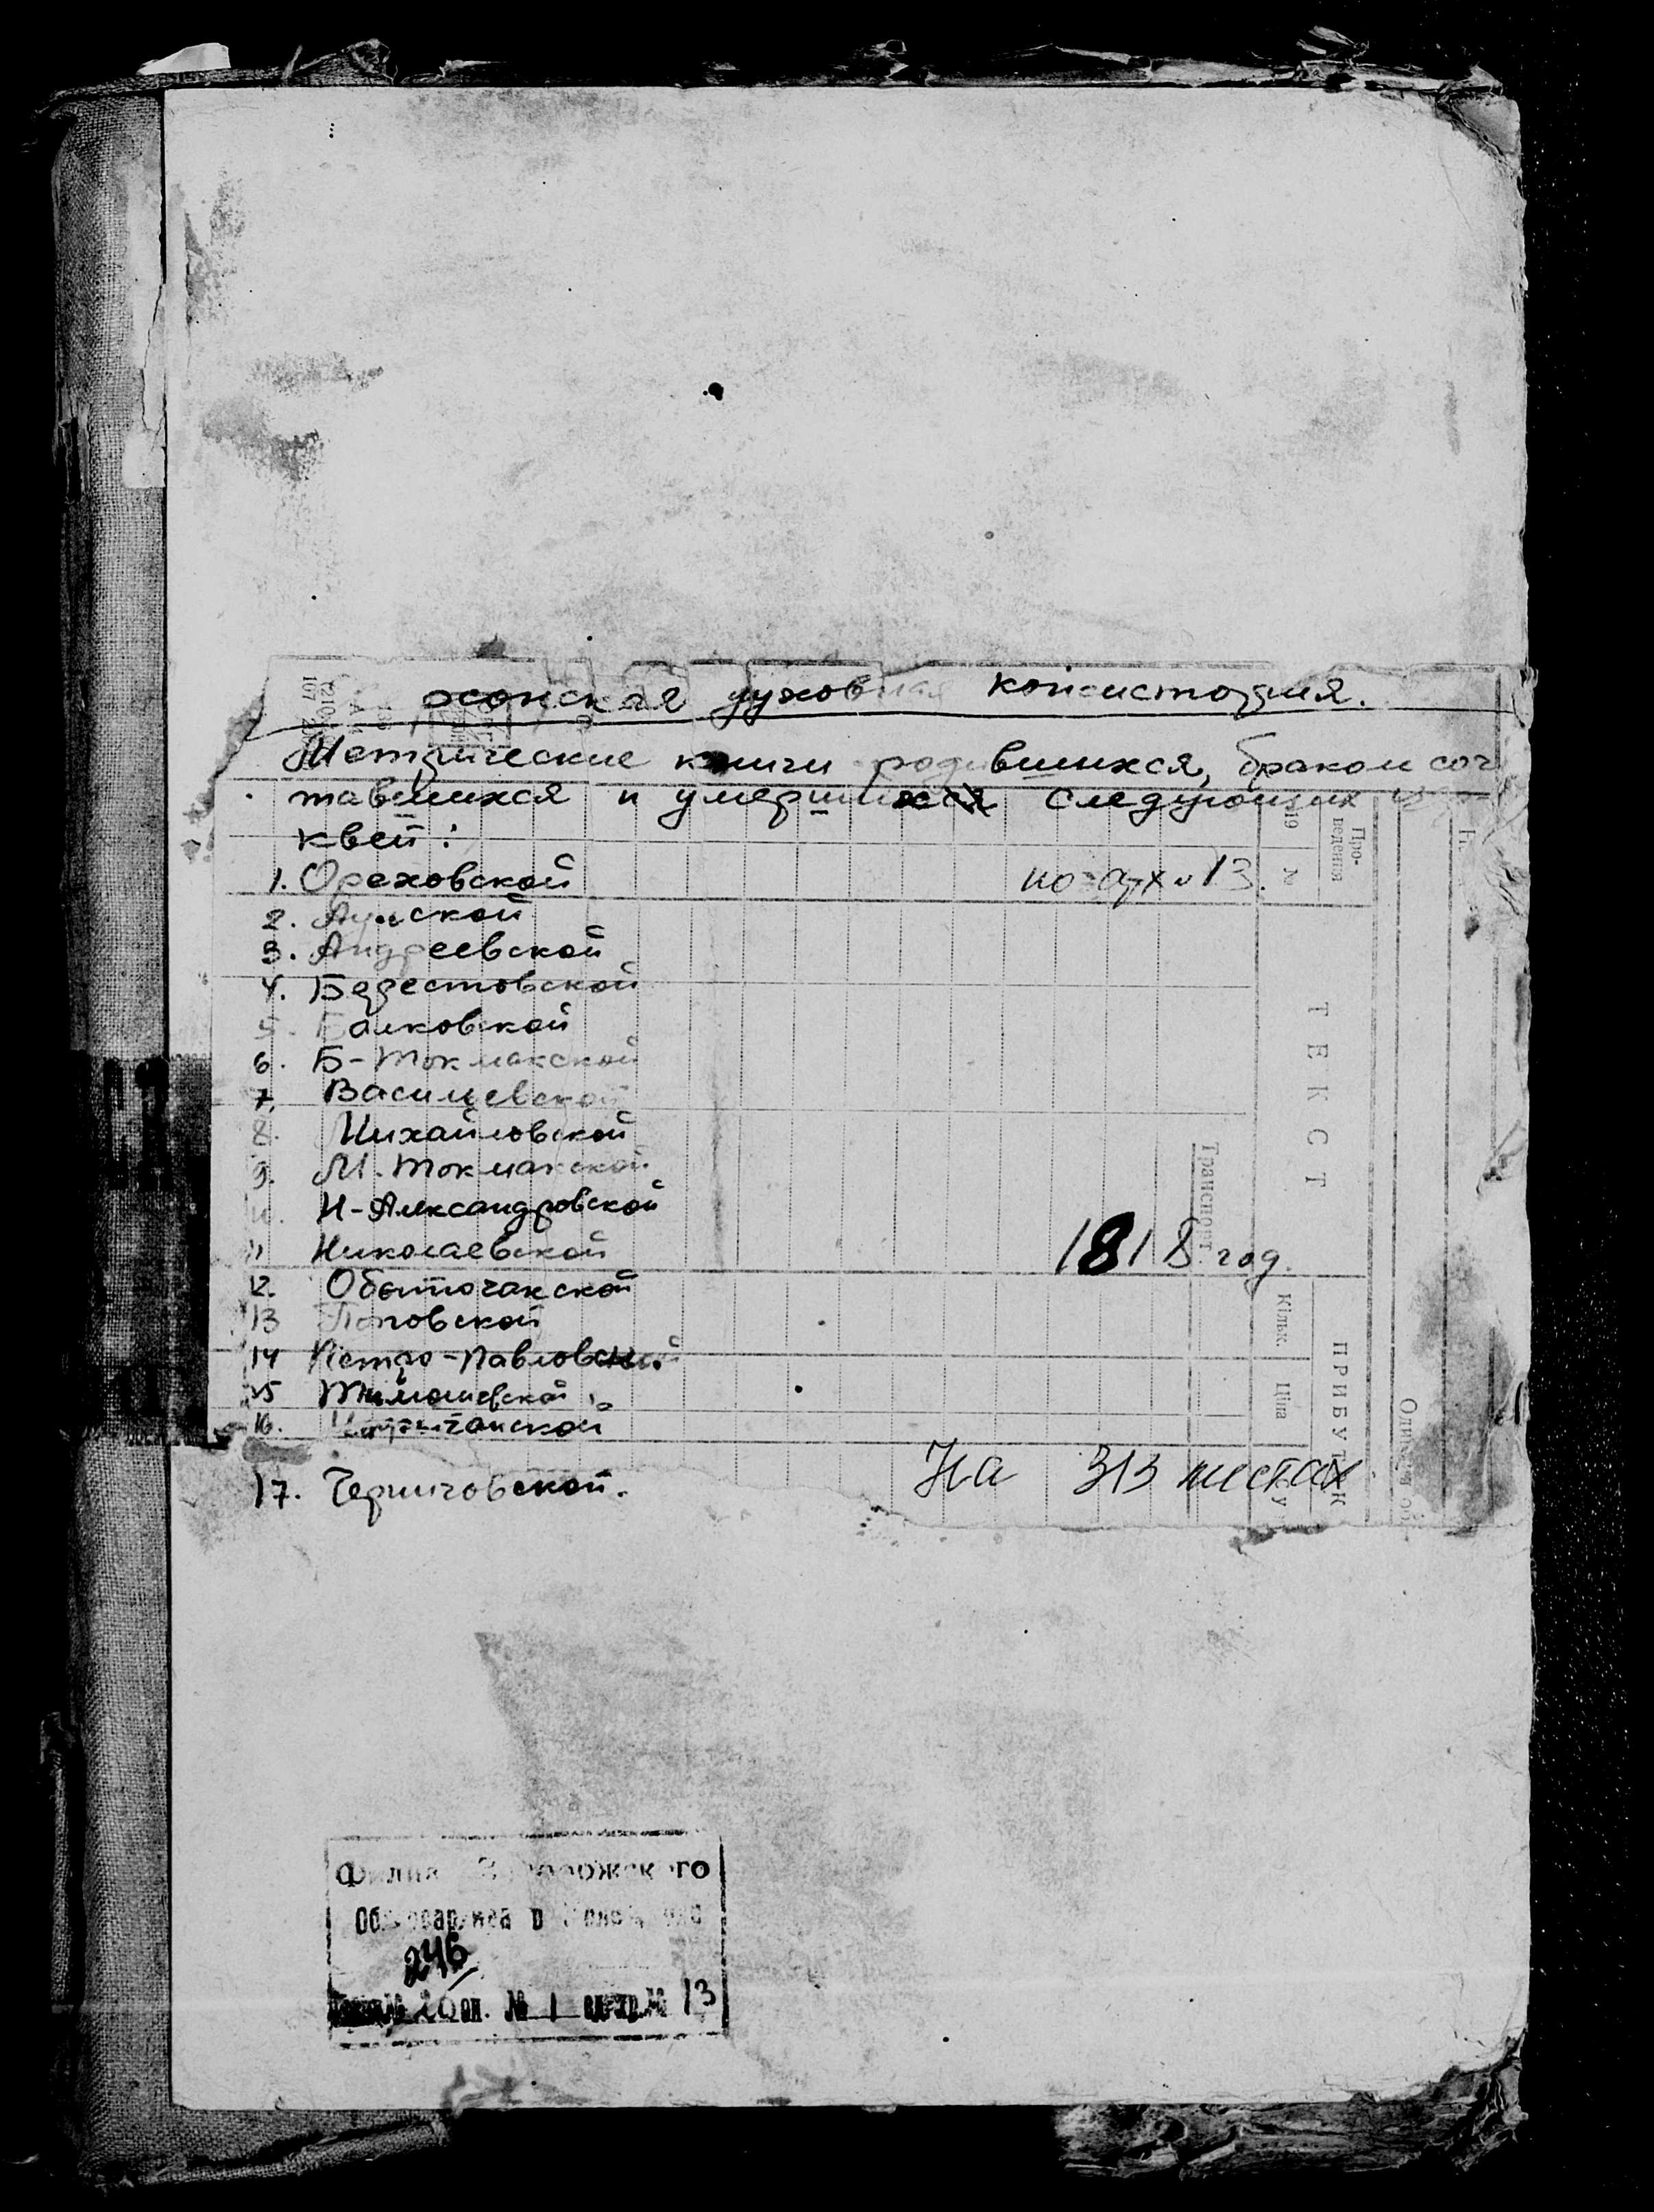 хонская духовная консистория.
Метрические книги родившихся, браком соч
тавшихся и умерших следующих
квей:
1. Ореховской
по арх. 13.
2.
3. Андреевской
4. Берестовской
5. Балковской
6. Б-Токмакской
7. Васильевской
8. Михайловской
9. М. Токмакской
Н-Александровской
11 Николаевской
1818 год.
12. Обиточакской
13 Поповской
14 Петро-Павловской
15 Тимошевской
16.
17. Черниговской.
На 313 листах
Про-
ведення
19
№
ТЕКСТ
Транспорт
Кільк.
Ціна
ПРИБУТОК
Филиал Запорожского
Облгосархива в
246
20 оп. № 1 ед.хр.№ 13